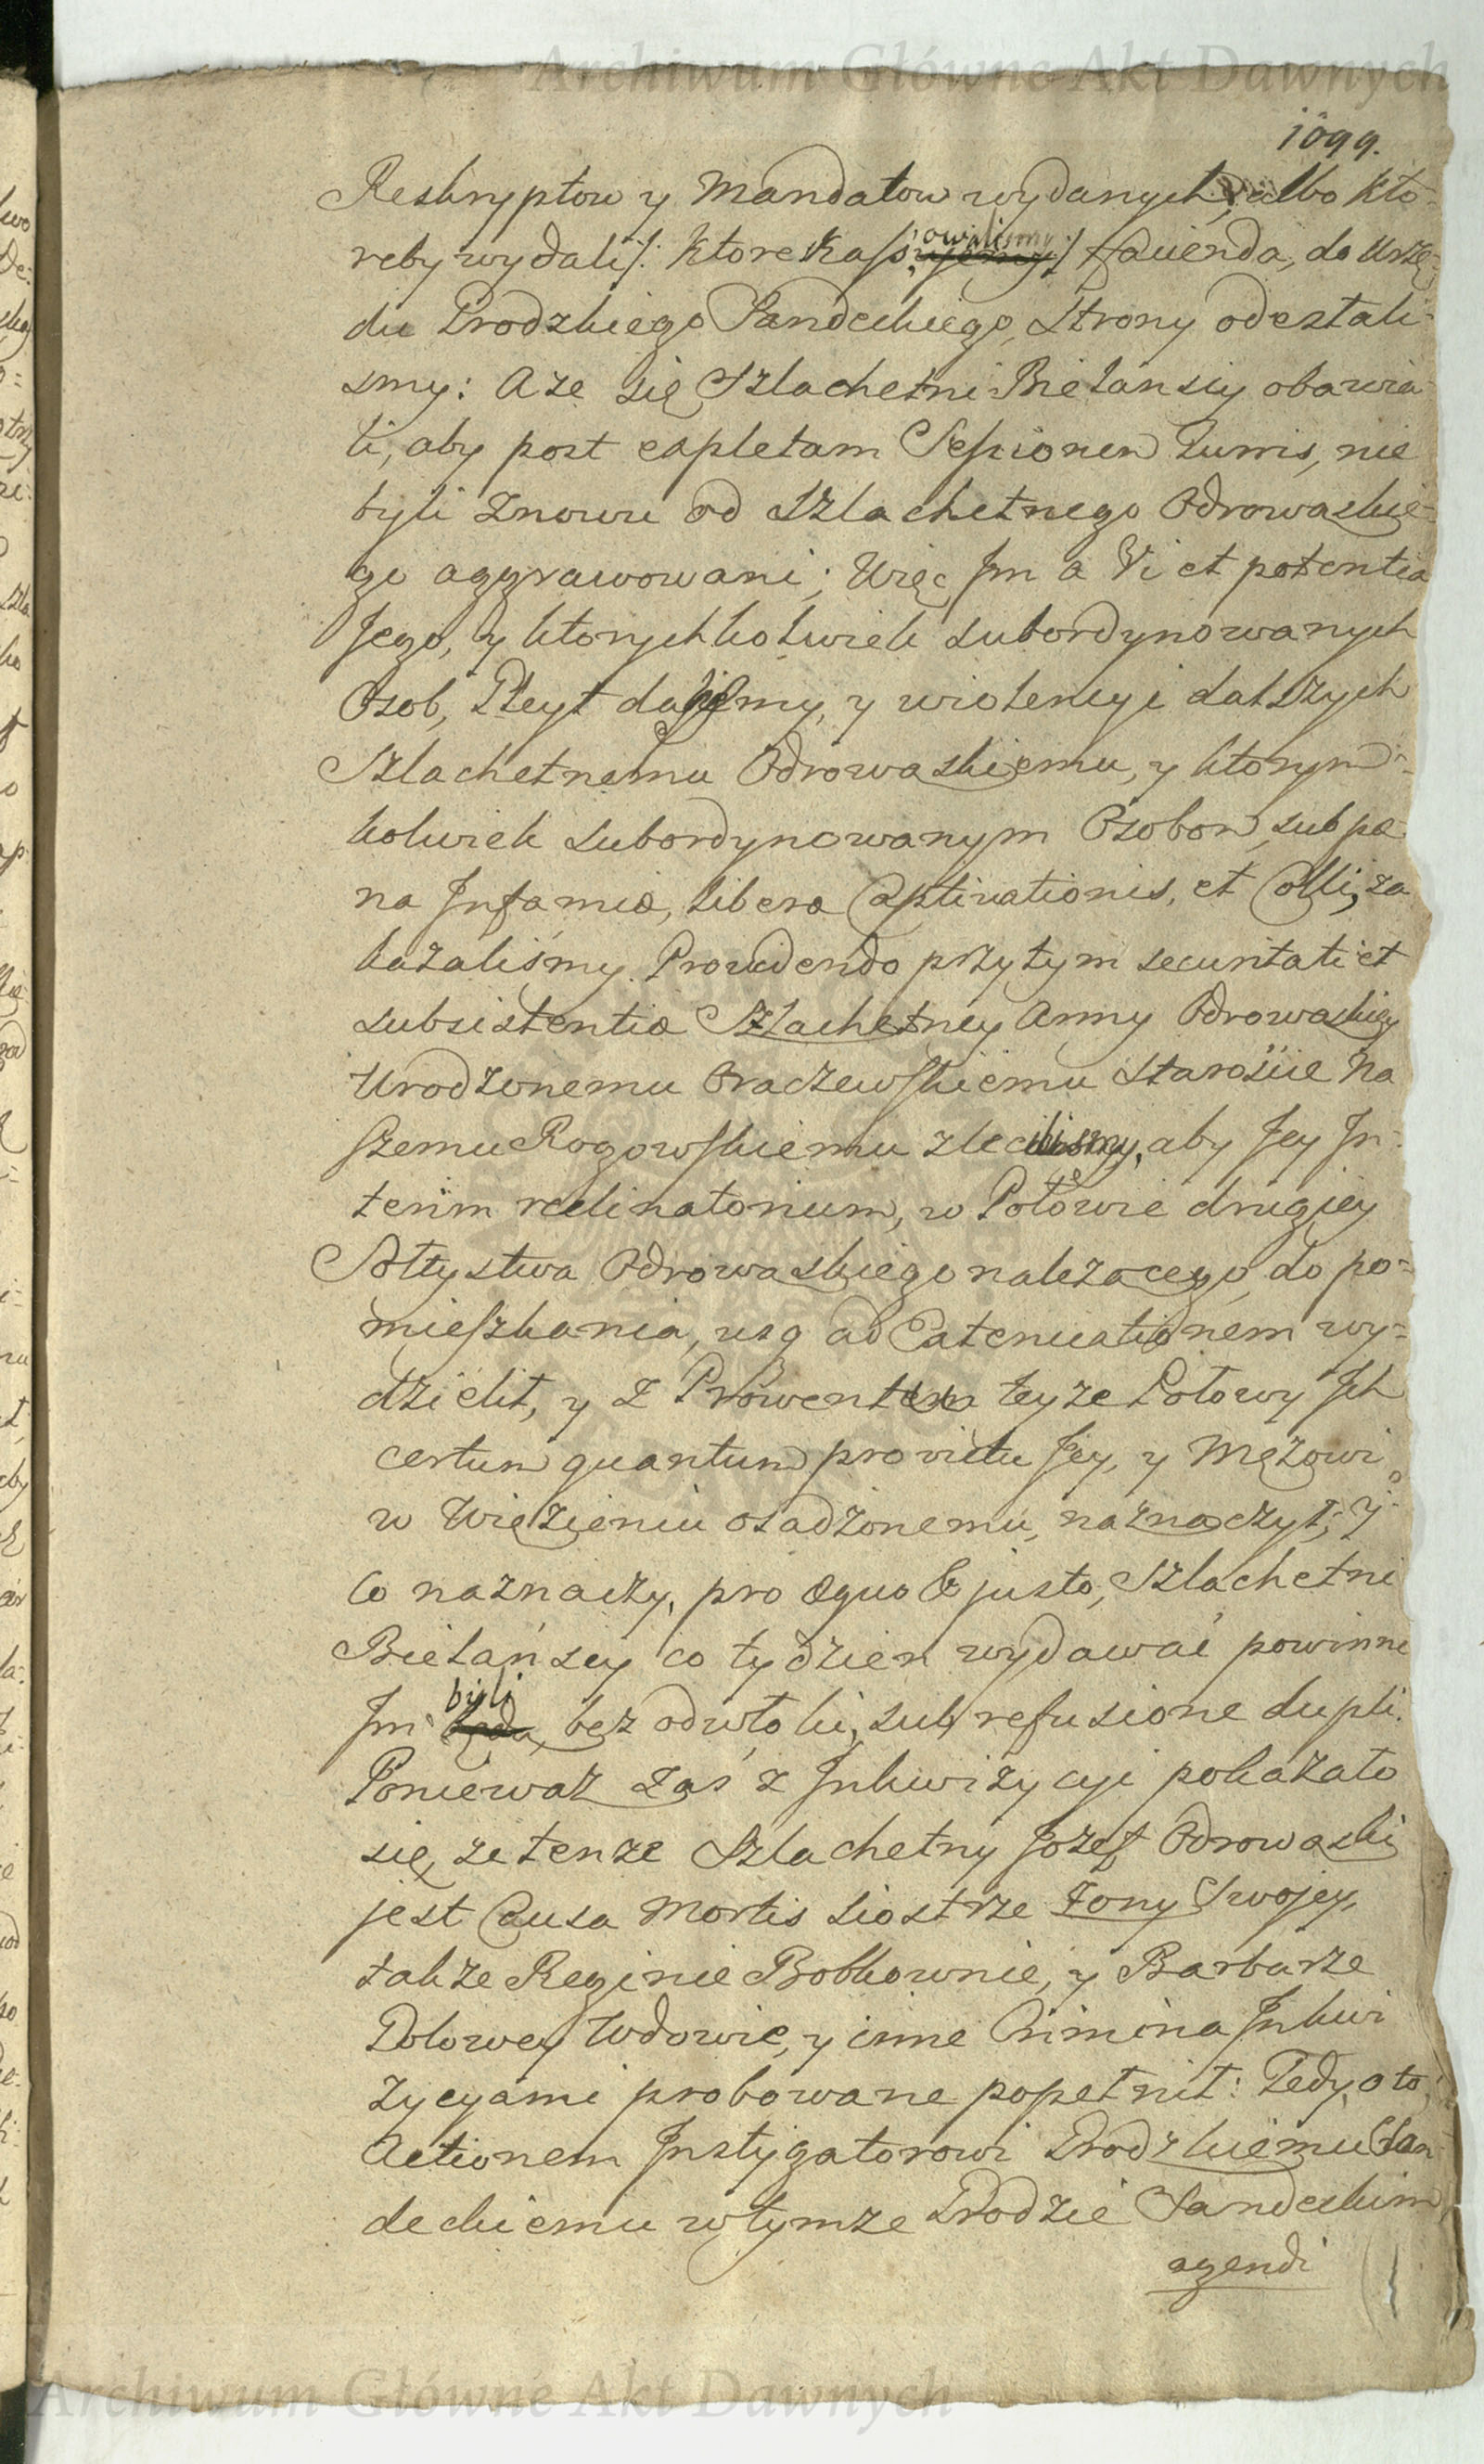 Archiwum Główne Akt Dawnych
1099.
Reskryptow y Mandatow wydanych, albo kto-
reby wydali /: ktore Kasso
owalismy
:/ do Urzę-
du Grodzkiego Sandeckiego, Strony odestali-
smy: A ze się Szlachetni Bielanscy obawia-
li, aby post expletam Sessionem Turris, nie
byli znowu od Szlachetnego Odrowąskie-
go aggrawowani; Więc Im a Vi et potentia
Jego, y ktorychkolwiek subordynowanych
Osob, Gleyt dajemy, y wiolencyi dalszych
Szlachetnemu Odrowąskiemu, y ktorym-
kolwiek subordynowanym Osobom, sub pæ-
na Infamiæ, liberæ Captivationis, et Colli, za
kazaliśmy. Providendo przytym securitati et
subsistentiæ Szlachetney Anny Odrowąskiey
Urodzonemu Oraczewskiemu Staroście Na
szemu Rogowskiemu zlecilismy, aby Jey In-
terim reclinatorium, w Połowie drugiey
Sołtystwa Odrowąskiego należącego, do po-
mieszkania, usq ad Extenuationem wy-
dzielił, y z Prowentow teyze Połowy Ich
certum quantum pro victu Jey, y Mężowi
w Więzieniu osadzonemu, naznaczył; Y
co naznaczy, pro æquo & justo, Szlachetni
Bielańscy co tydzien wydawać powinni
byli
Im będą, bez odwłoki, sub refusione dupli.
Ponieważ zaś z Inkwizycyi pokazało
się, ze tenze Szlachetny Jozef Odrowąski
jest Causa Mortis siostrze Zony Swojey,
takze Reginie Bobkownie, y Barbarze
Wdowie, y inne Crimina Inkwi
zycyami probowane popełnił: Tedy, o to,
Actionem Instygatorowi Grodzkiemu San-
deckiemu w tymze Grodzie Sandeckim
agendi
Archiwum Główne Akt Dawnych